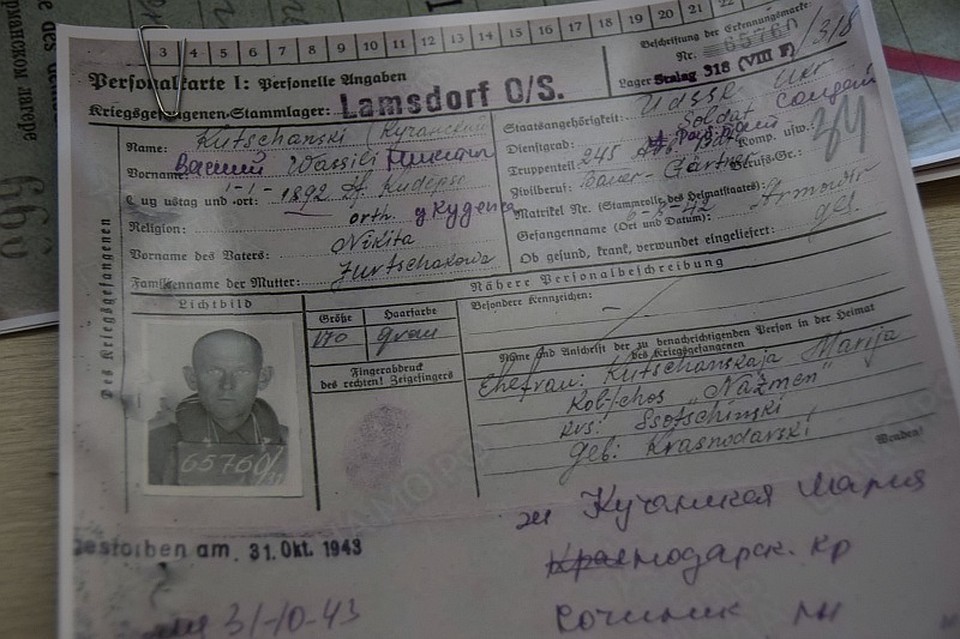 3 4 5 6 7 8 9 10 11 12 13 14 15 16 17 18 19 20 21 22
Personalkarte I: Personelle Angaben
Kriegsgefangenen-Stammlager: Lamsdorf O/S.
Beschriftung der Erkennungsmarke
Nr. 65760/318
Lager: Stalag 318 (VIII F)
Des Kriegsgefangenen
Name: Kutschanski (Кучанский
Vorname: Василий Wassili Никитич
1-1-1892 Kudepse
Religion: orth. д Кудепса
Vorname des Vaters: Nikita
Familienname der Mutter: Jurtschakowa
Staatsangehörigkeit: UdSSR Ukr
Dienstgrad: Soldat солдат
Truppenteil: 245 Komp. usw.:
Zivilberuf: Bauer-Gärtner Berufs-Gr.:
Matrikel Nr. (Stammrolle des Heimatstaates):
Gefangennahme (Ort und Datum): 6-8-42 Armawir
Ob gesund, krank, verwundet eingeliefert: ges.
Nähere Personalbeschreibung
Lichtbild
Größe Haarfarbe
170 grau
Fingerabdruck
des rechten! Zeigefingers
Besondere Kennzeichen: —
Name und Anschrift der zu benachrichtigenden Person in der Heimat
des Kriegsgefangenen
Ehefrau: Kutschanskaja Marija
Kolchos „Nazmen"
krs: Ssotschinski
geb: Krasnodarski
Wenden!
65760
ж Кучанская Мария
Краснодарск. кр
Сочинск рн
Gestorben am. 31. Okt. 1943
31-10-43